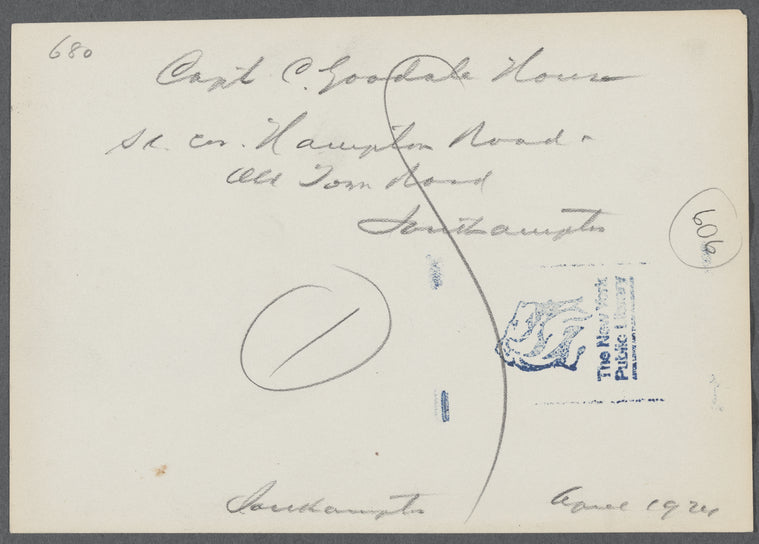 680
Capt C. Goodale House
S.E. cor. Hampton Road &
Old Town Road
Southampton
606
1
The New York
Public Library
Southampton
April 1924